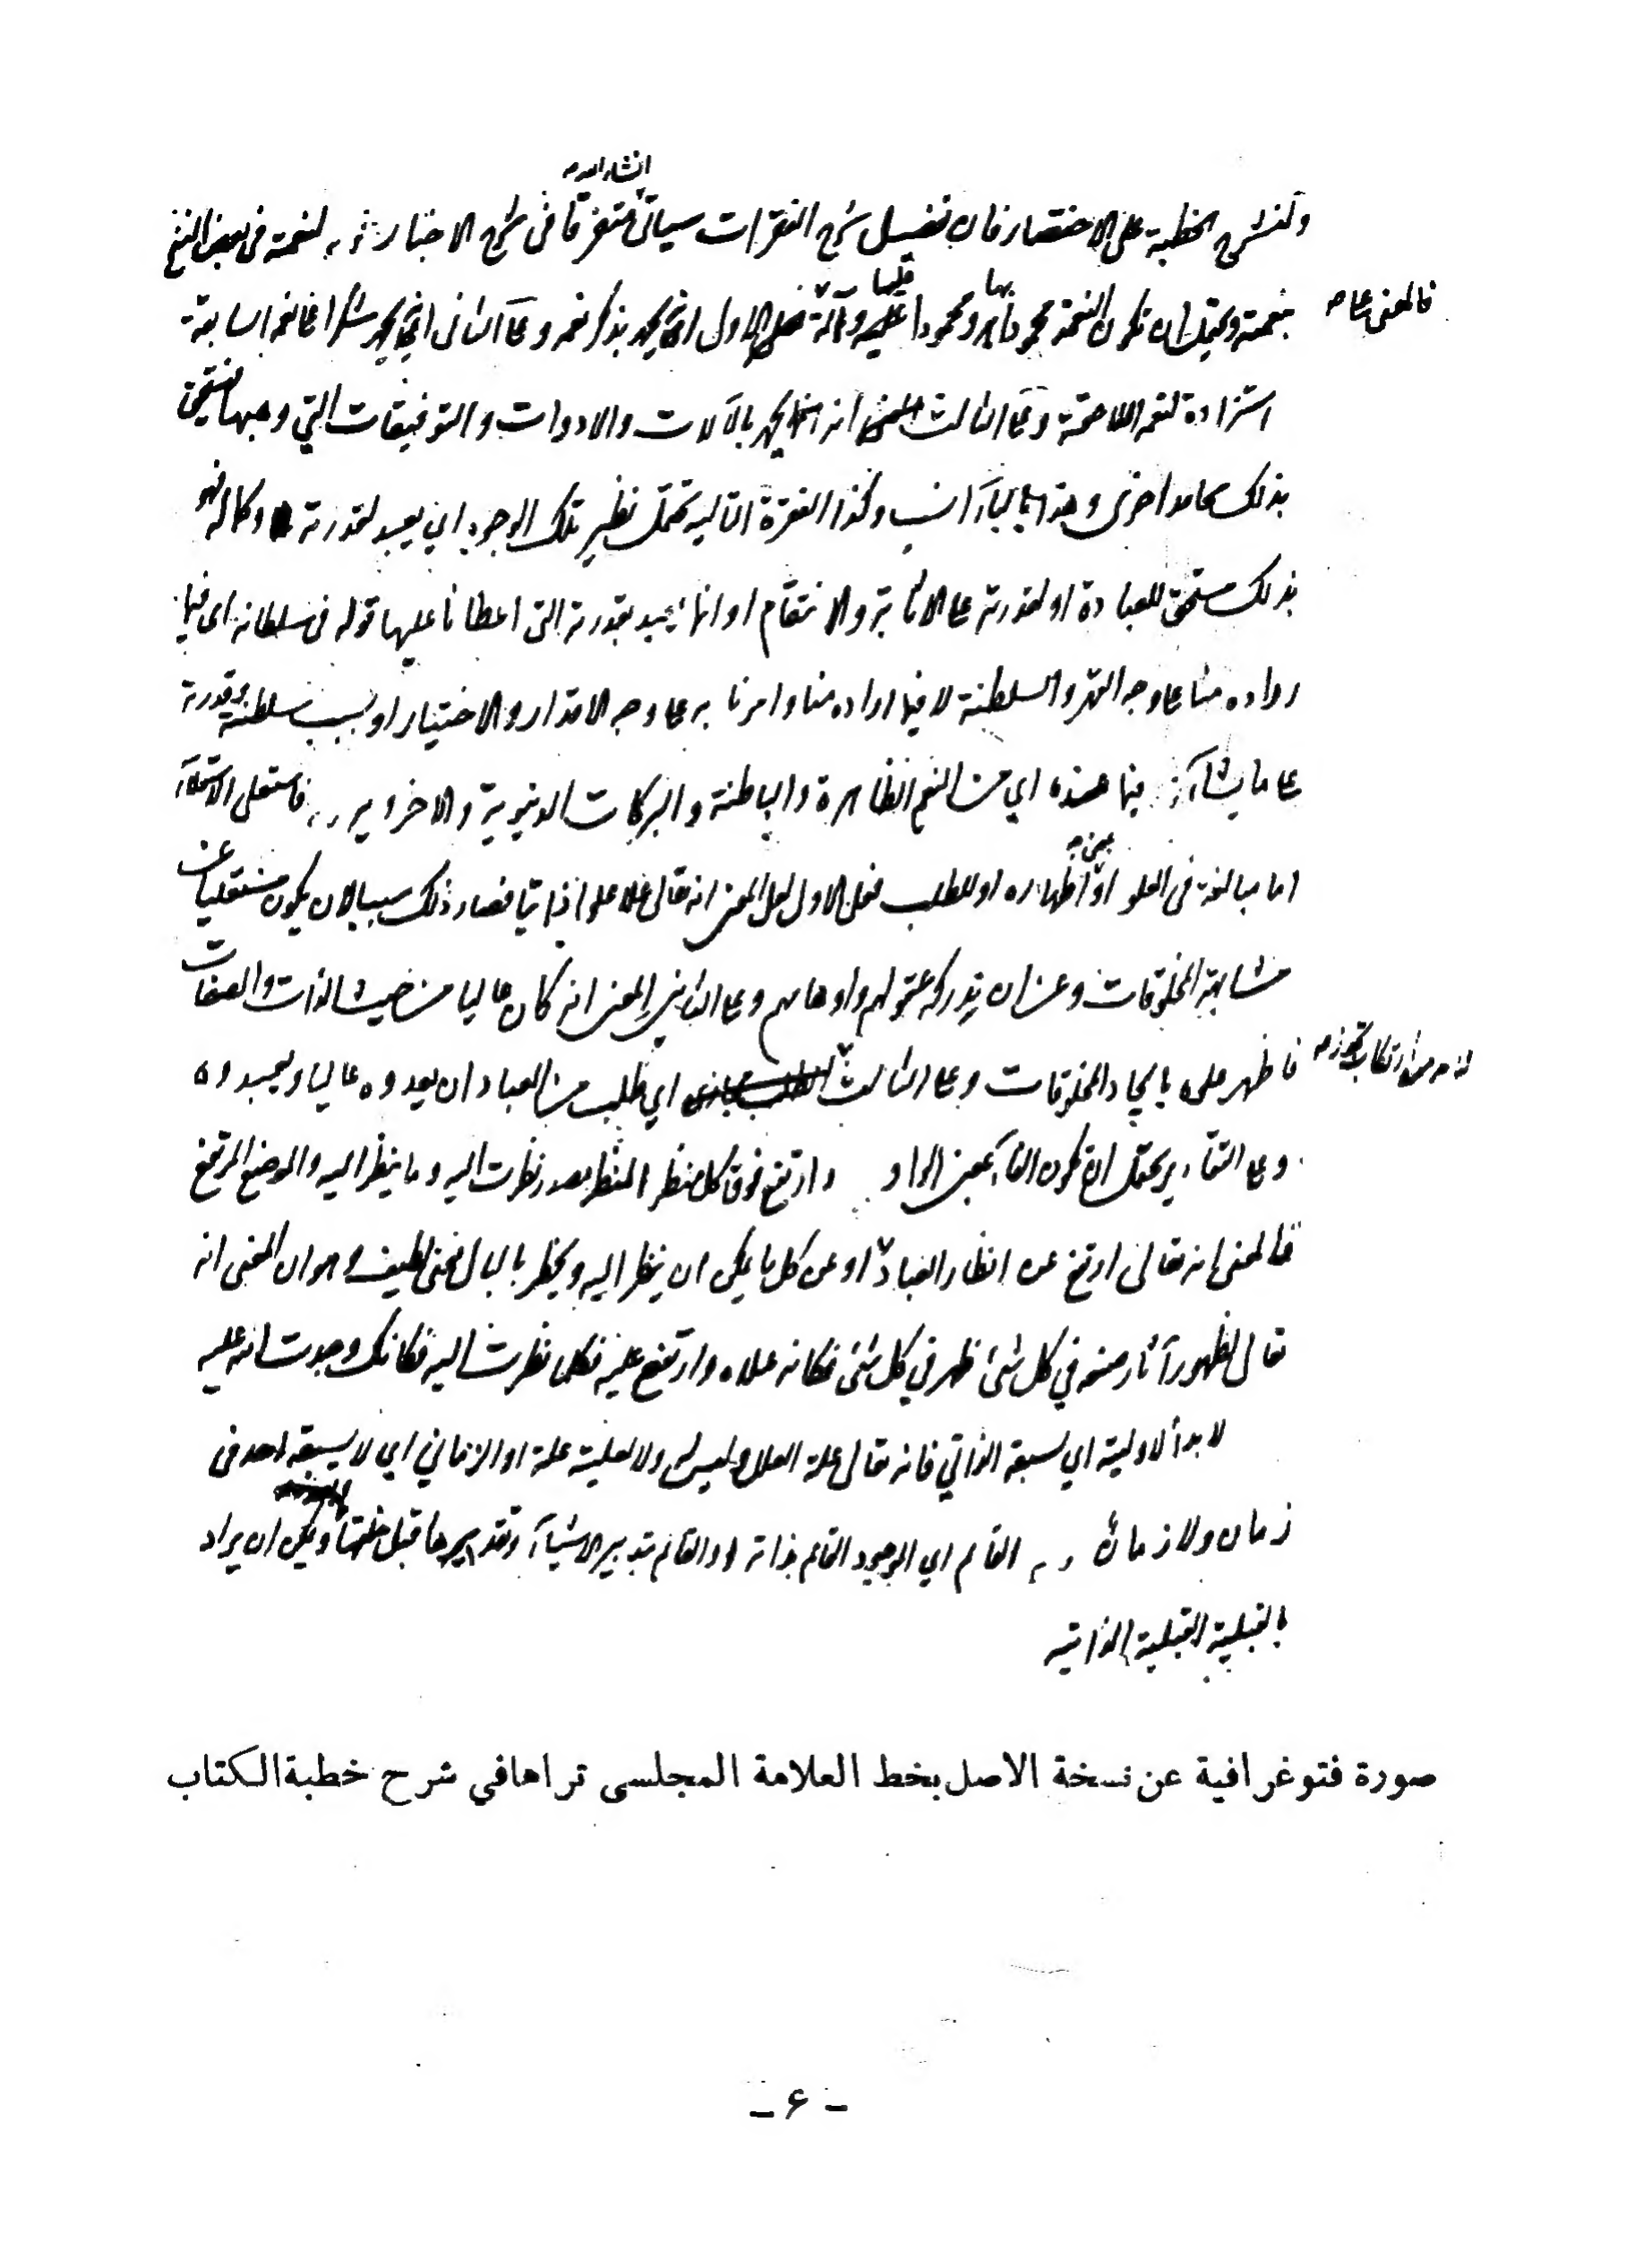 انشاء الله
ولنشرح الخطبة على الاختصار فان تفصيل شرح الفقرات سيأتي متفرقا في شرح الاخبار لنعمه في بعض النسخ
فالمعنى على
بنعمته ويحتمل ان تكون النعمة محمودا بها ومحمودا عليها وآلة الاول انه يحمد بذكر نعمه وعلى الثاني انه يحمد شكرا على نعمه السابقة
استزادة لنعمه اللاحقة وعلى الثالث انه انما يحمد بالآلات والادوات والتوفيقات التي وهبها فيستحق
بذلك محامد اخرى وهذا بالباء انسب وكذا الفقرة التالية تحتمل نظير تلك الوجوه اي يعبد لقدرته وكماله فهو
بذلك مستحق للعبادة او لقدرته على الاثابة والانتقام او انما يعبد بقدرته التي اعطانا عليها قوله في سلطانه اي فيما
اراده منا على وجه القهر والسلطنة لا فيما اراده منا وامرنا به على وجه الاقدار والاختيار او بسبب سلطنته وقدرته
على ما يشاء فيما عنده اي من النعم الظاهرة والباطنة والبركات الدنيوية والاخروية فاستعلى الاستعلاء
اما مبالغة في العلو او بمعنى اظهاره او للطلب فعلى الاول لعل المعنى انه تعالى علا علوا ذاتيا فصار ذلك سببا لان يكون مستعليا عن
مشابهة المخلوقات وعن ان تدركه عقولهم واوهامهم وعلى الثاني المعنى انه كان عاليا من حيث الذات والصفات
فاظهر علوه بايجاد المخلوقات وعلى الثالث لا بد من ارتكاب تجوز اي طلب من العباد ان يعدوه عاليا ويعبدوه
وعلى التقادير يحتمل ان تكون الفاء بمعنى الواو وارتفع فوق كل منظر المنظر مصدر نظرت اليه وما ينظر اليه والموضع المرتفع
فالمعنى انه تعالى ارتفع عن انظار العباد او عن كل ما يمكن ان ينظر اليه ويخطر بالبال معنى لطيف وهو ان المعنى انه
تعالى لظهور آثار صنعه في كل شيء ظهر في كل شيء فكانه علاه وارتفع عليه فكلما نظرت اليه فكانك وجدت الله عليه
لا بدأ لاوليته اي لسبقه الذاتي فانه تعالى علة العلل وليس له ولا لعليته علة او الزماني اي لا يسبقه احد في
زمان ولا زمان القائم اي الوجود القائم بذاته او القائم بتدبير الاشياء وتقديرها قبل خلقها ويمكن ان يراد
بالقبلية القبلية الذاتية
صورة فتوغرافية عن نسخة الاصل بخط العلامة المجلسى تراها في شرح خطبة الكتاب
- ۶ -